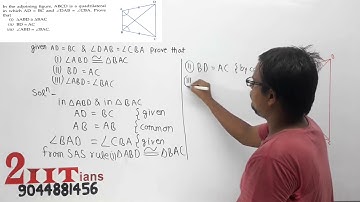 In the adjoining figure, ABCD is a quadrilateral
in which AD = BC and ∠DAB = ∠CBA. Prove
that
(i) ΔABD ≅ ΔBAC
(ii) BD = AC
(iii) ∠ABD = ∠BAC
given AD = BC & ∠DAB = ∠CBA Prove that
(i) ∠ABD ≅ ΔBAC
(ii) BD = AC
(iii) ∠ABD = ∠BAC
Solⁿ-
in ΔABD & in ΔBAC
AD = BC {given
AB = AB {common
∠BAD = ∠CBA {given
from SAS rule (i) ΔABD ≅ ΔBAC
(ii) BD = AC {by c
(iii)
2IITians
9044881456